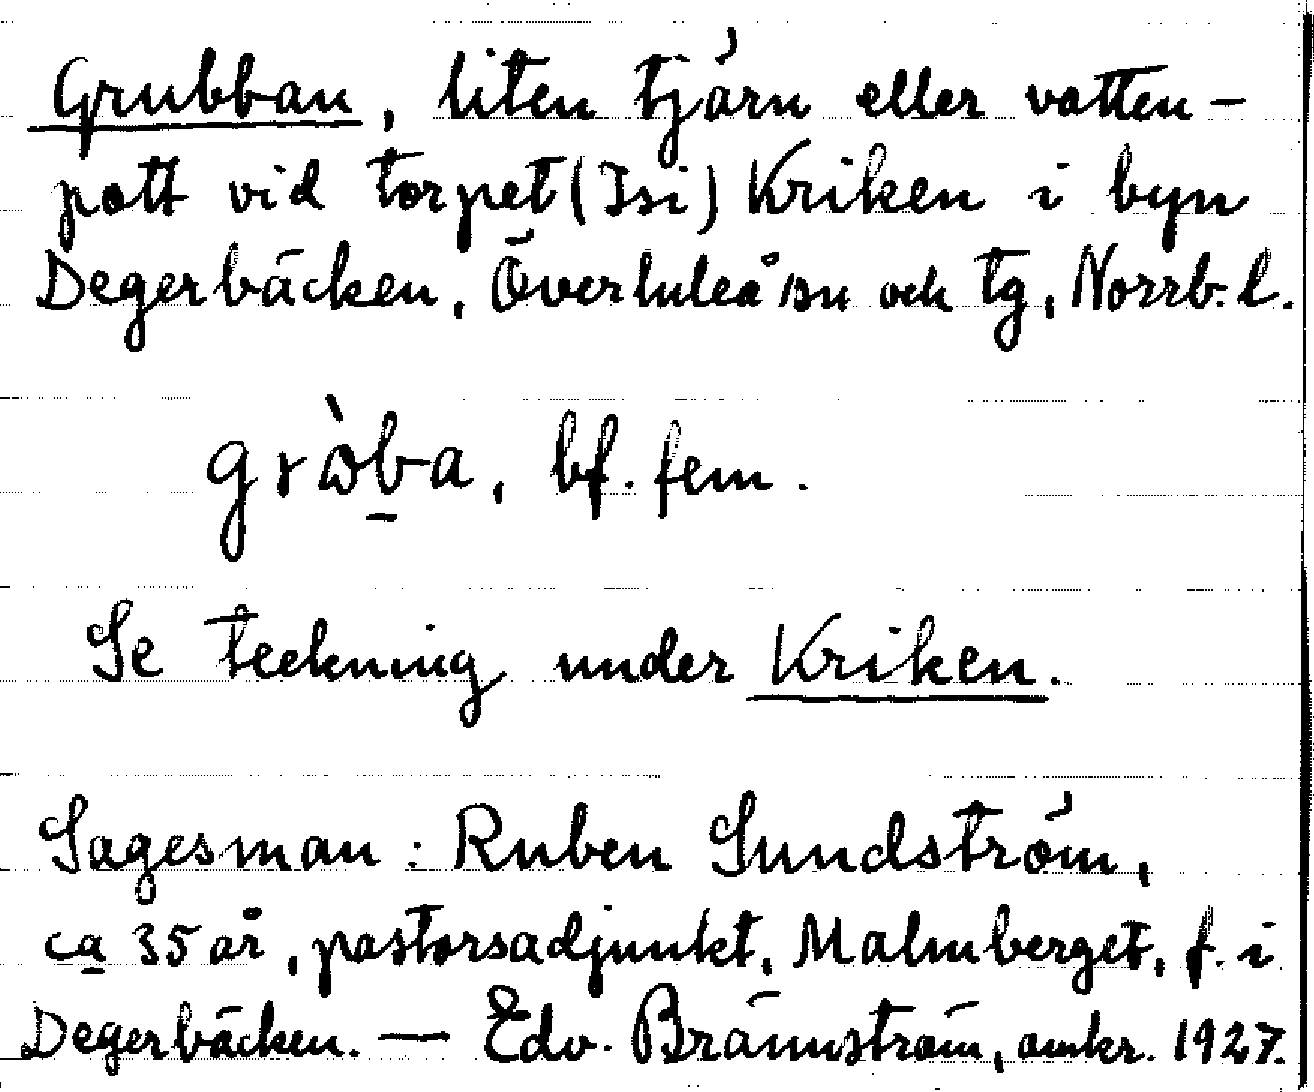 Grubban, liten tjärn eller vatten-
pott vid torpet (Isi) Kriken i byn
Degerbäcken, Överluleå sn och tg, Norrb. l.
bf. fem.
Se teckning under Kriken.
Sagesman: Ruben Sundström,
ca 35 år, pastorsadjunkt, Malmberget, f. i
Degerbäcken. — Edv. Brännström, omkr. 1927.